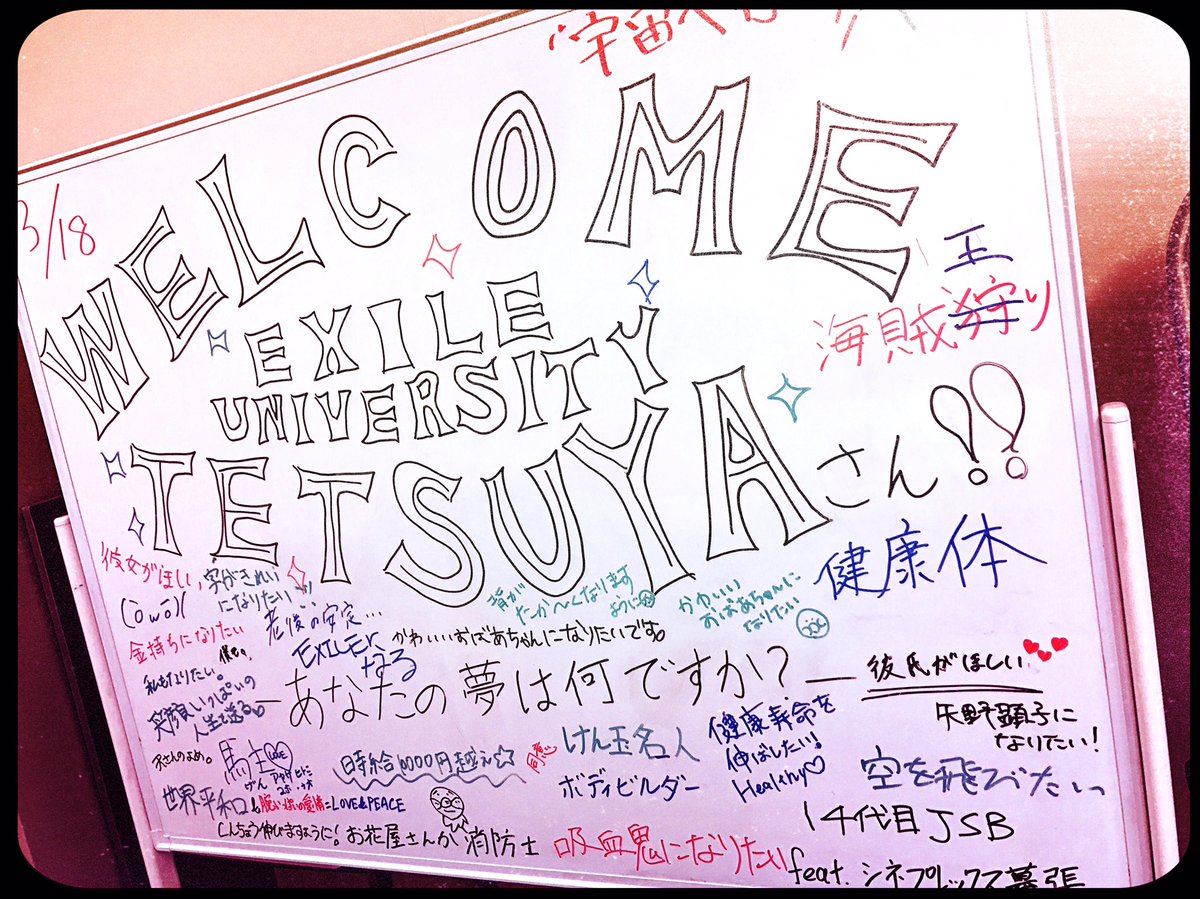 宇宙へ
3/18
WELCOME
EXILE
UNIVERSITY
TETSUYAさん!!
王
海賊狩り
健康体
彼女がほしい、
(ōwō)/
字がきれい
になりたい
金持ちになりたい
僕も。
私もなりたい。
老後の安定…
EXILEに
なる
背が
たか〜くなります
ように
かわいい
おばあちゃんに
なりたい
かわいいおばあちゃんになりたいです。
笑顔いっぱいの
人生を送る
―あなたの夢は何ですか?―
彼氏がほしい
矢野顕子に
なりたい!
馬主
時給10000円越え☆
同意
けん玉名人
ボディビルダー
健康寿命を
伸ばしたい!
Healthy♡
空を飛びたいっ
世界平和
=LOVE&PEACE
しんちょう伸びますように!
お花屋さんか消防士
吸血鬼になりたい
14代目JSB
feat.シネプレックス幕張